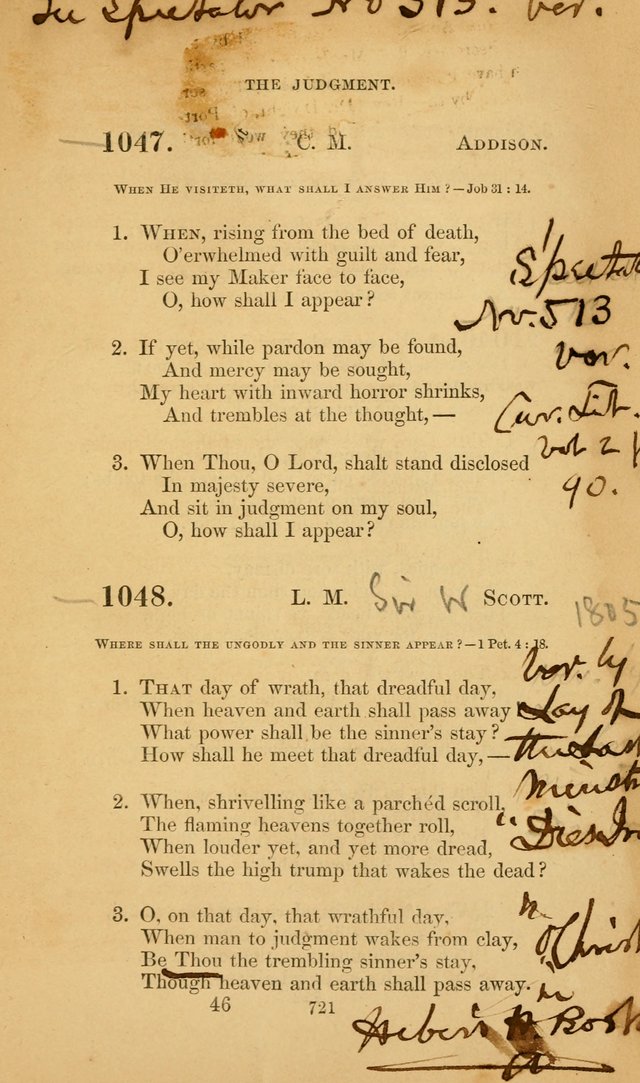 See Spectator No 513. var.
THE JUDGMENT.
1047. C. M. ADDISON.
WHEN HE VISITETH, WHAT SHALL I ANSWER HIM? — Job 31 : 14.
1. WHEN, rising from the bed of death,
O'erwhelmed with guilt and fear,
I see my Maker face to face,
O, how shall I appear?
Spectat
No. 513
2. If yet, while pardon may be found,
And mercy may be sought,
var.
My heart with inward horror shrinks,
And trembles at the thought, —
Cur. Lit.
vol 2 p
3. When Thou, O Lord, shalt stand disclosed
In majesty severe,
90.
And sit in judgment on my soul,
O, how shall I appear?
1048. L. M. Sir W SCOTT. 1805
WHERE SHALL THE UNGODLY AND THE SINNER APPEAR? — 1 Pet. 4 : 18.
var. by
1. THAT day of wrath, that dreadful day,
When heaven and earth shall pass away
Lay of
What power shall be the sinner's stay?
the Last
How shall he meet that dreadful day, —
Minst
2. When, shrivelling like a parchéd scroll,
The flaming heavens together roll,
"Dies Ir
When louder yet, and yet more dread,
Swells the high trump that wakes the dead?
3. O, on that day, that wrathful day,
When man to judgment wakes from clay,
O Christ
Be Thou the trembling sinner's stay,
Though heaven and earth shall pass away.
in
46
721
Heber's H. Book